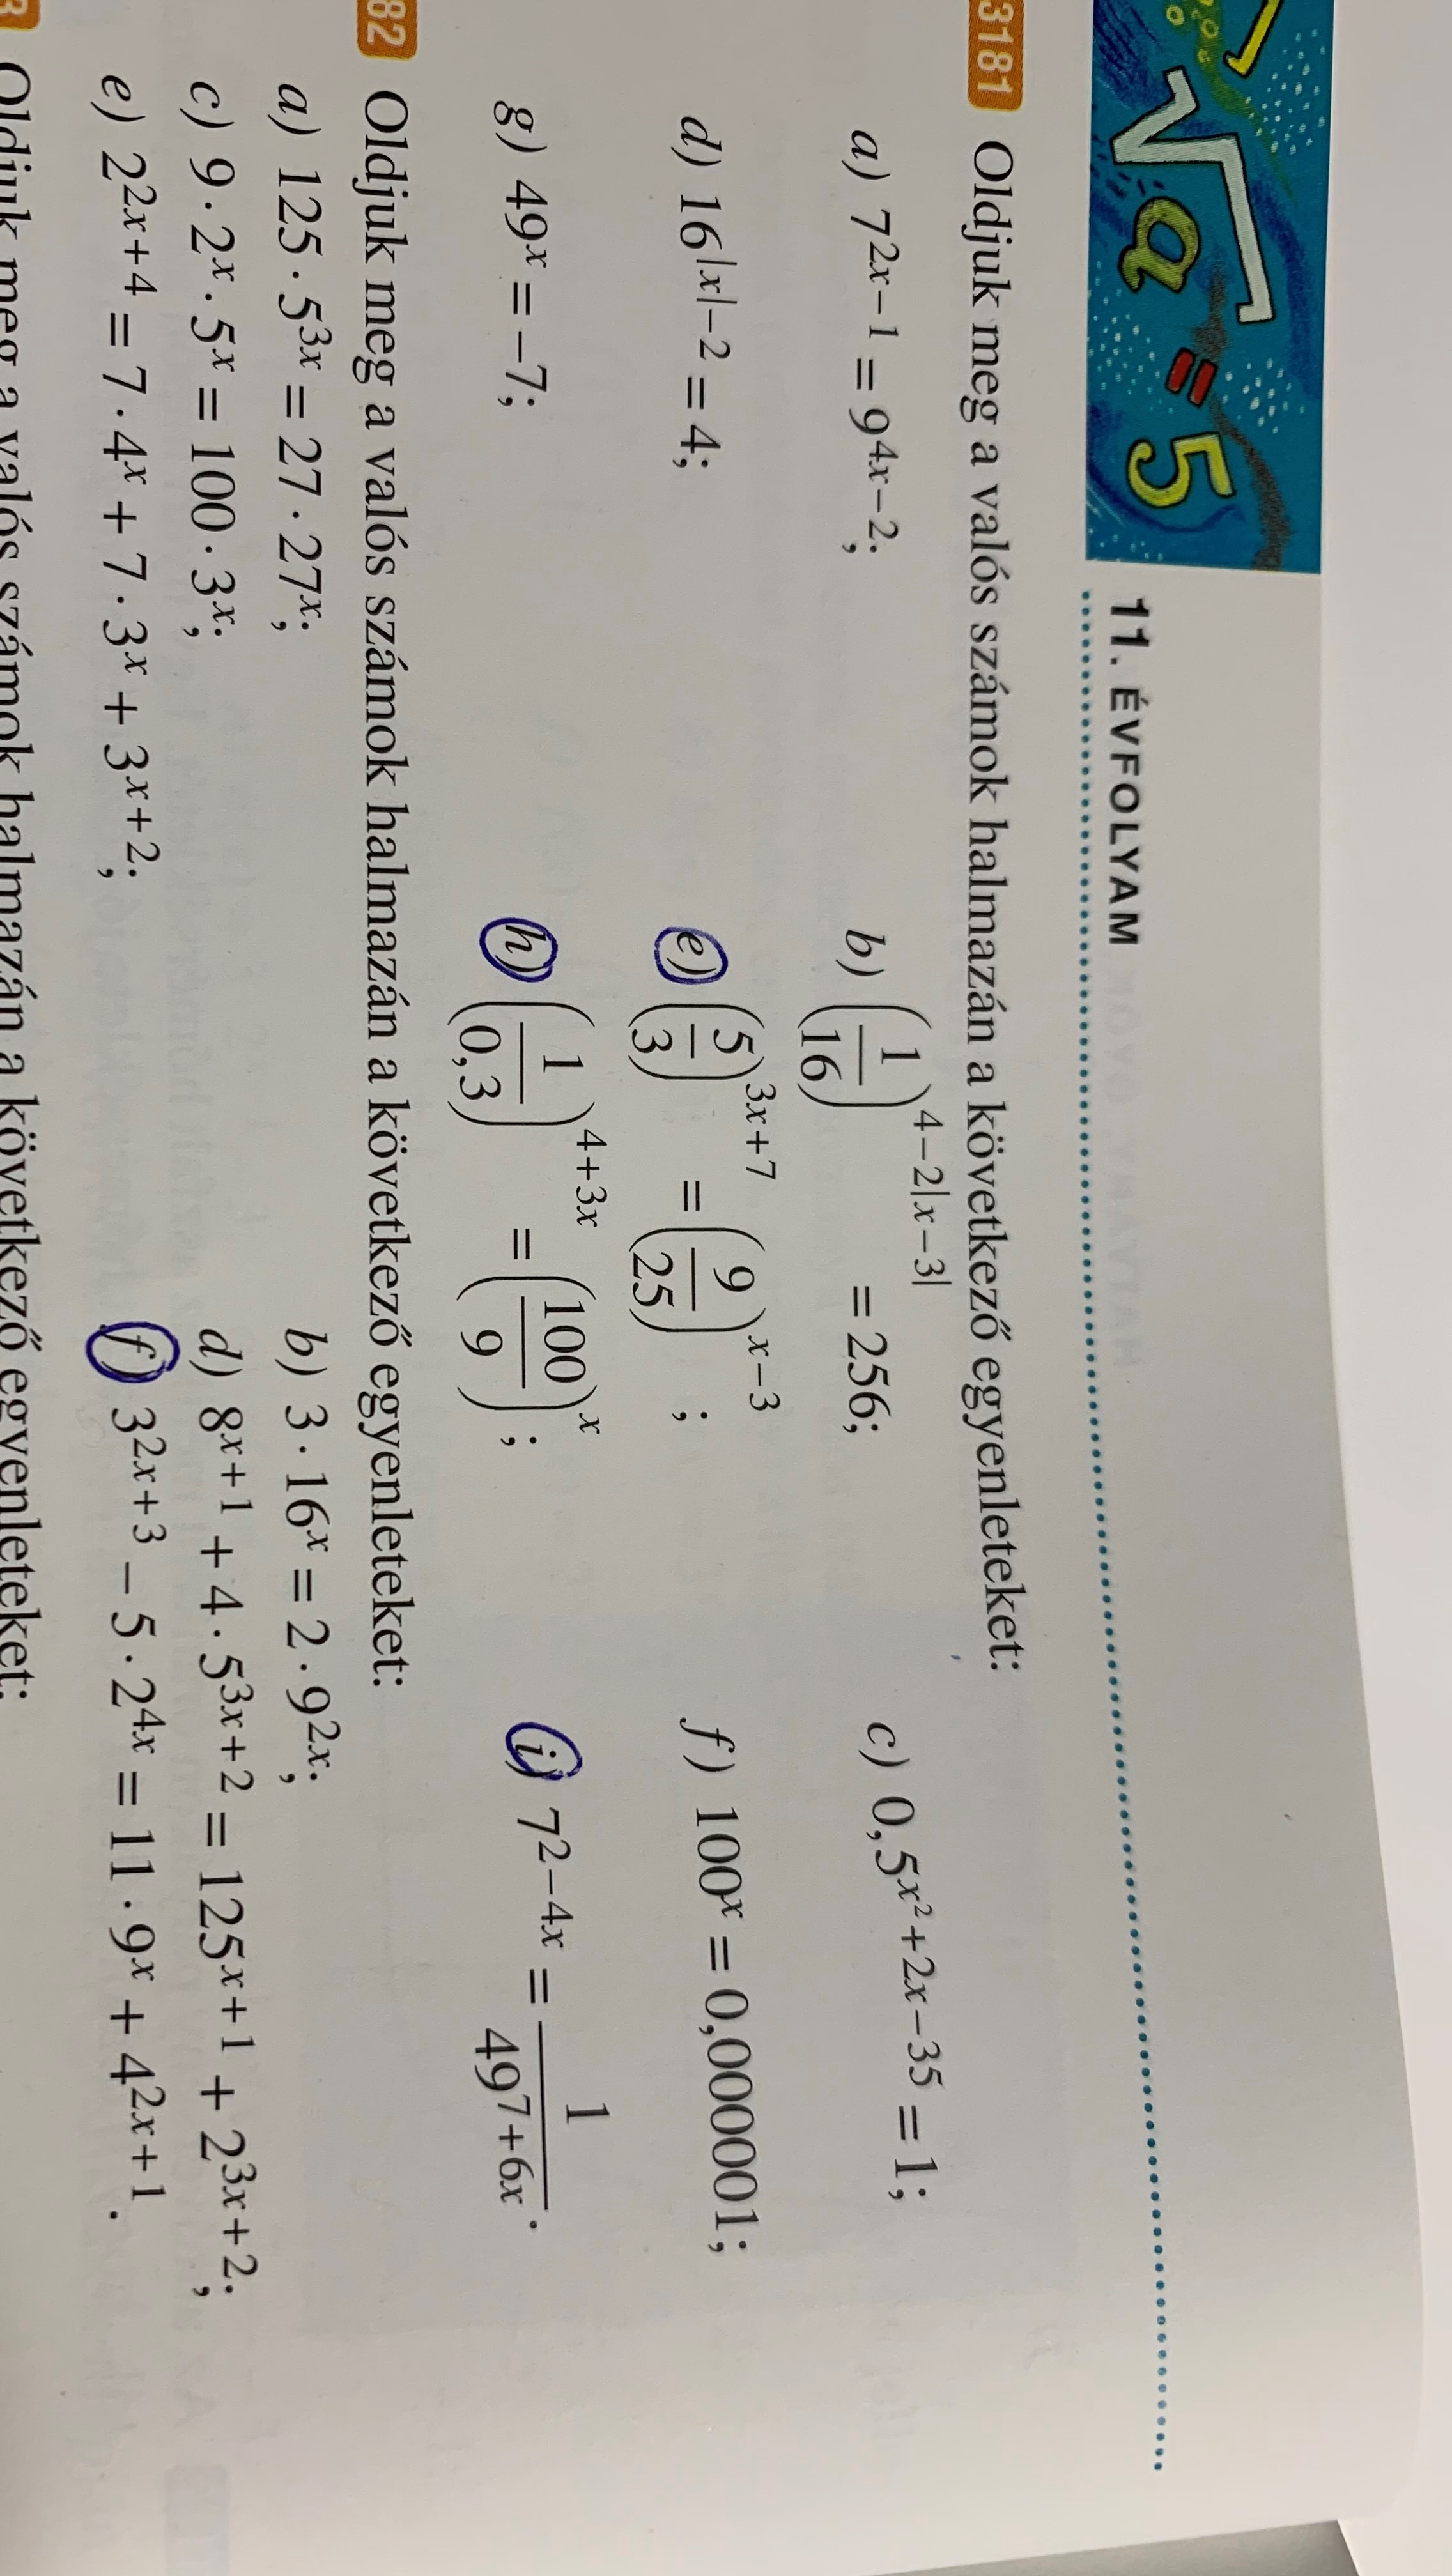 √a = 5
11. ÉVFOLYAM
3181 Oldjuk meg a valós számok halmazán a következő egyenleteket:
a) 7^{2x−1} = 9^{4x−2}; b) (1/16)^{4−2|x−3|} = 256; c) 0,5^{x²+2x−35} = 1;
d) 16^{|x|−2} = 4; e) (5/3)^{3x+7} = (9/25)^{x−3}; f) 100^x = 0,000001;
g) 49^x = −7; h) (1/0,3)^{4+3x} = (100/9)^x; i) 7^{2−4x} = 1/49^{7+6x}.
82 Oldjuk meg a valós számok halmazán a következő egyenleteket:
a) 125 · 5^{3x} = 27 · 27^x; b) 3 · 16^x = 2 · 9^{2x};
c) 9 · 2^x · 5^x = 100 · 3^x; d) 8^{x+1} + 4 · 5^{3x+2} = 125^{x+1} + 2^{3x+2};
e) 2^{2x+4} = 7 · 4^x + 7 · 3^x + 3^{x+2}; f) 3^{2x+3} − 5 · 2^{4x} = 11 · 9^x + 4^{2x+1}.
3 Oldjuk meg a valós számok halmazán a következő egyenleteket: